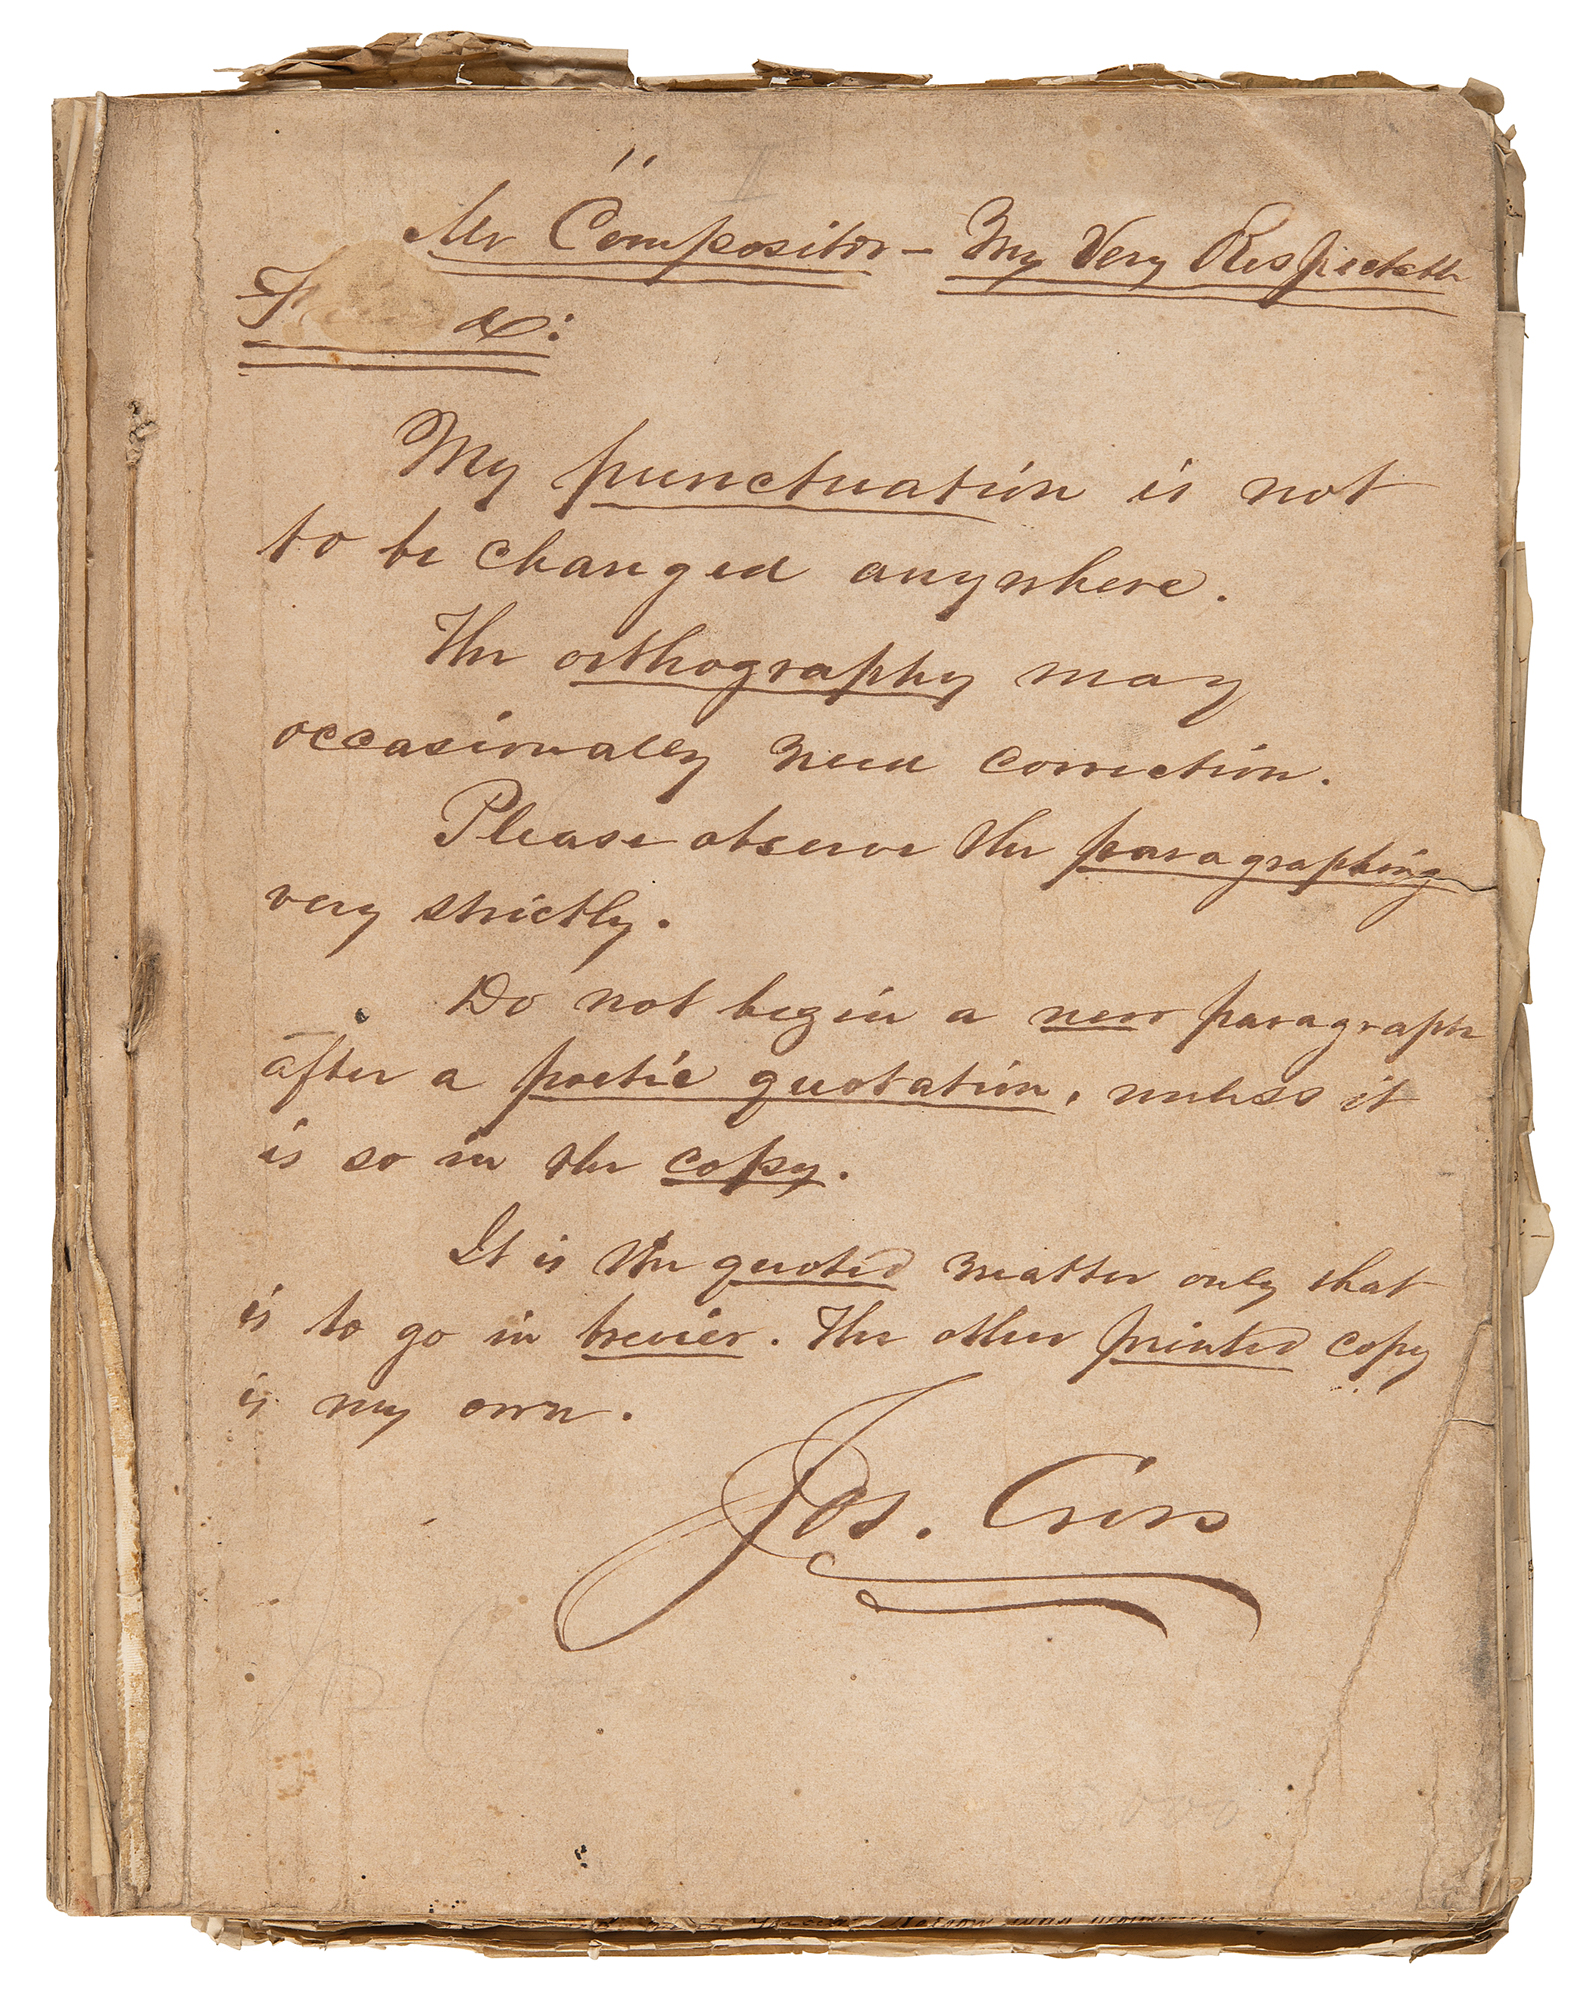 Mr Compositor – My Very Respectable
&:
My punctuation is not
to be changed anywhere.
The orthography may
occasionally need correction.
Please observe the paragraphing
very strictly.
Do not begin a new paragraph
after a poetic quotation, unless it
is so in the copy.
It is the quoted matter only that
is to go in brevier. The other printed copy
is my own.
Jos.